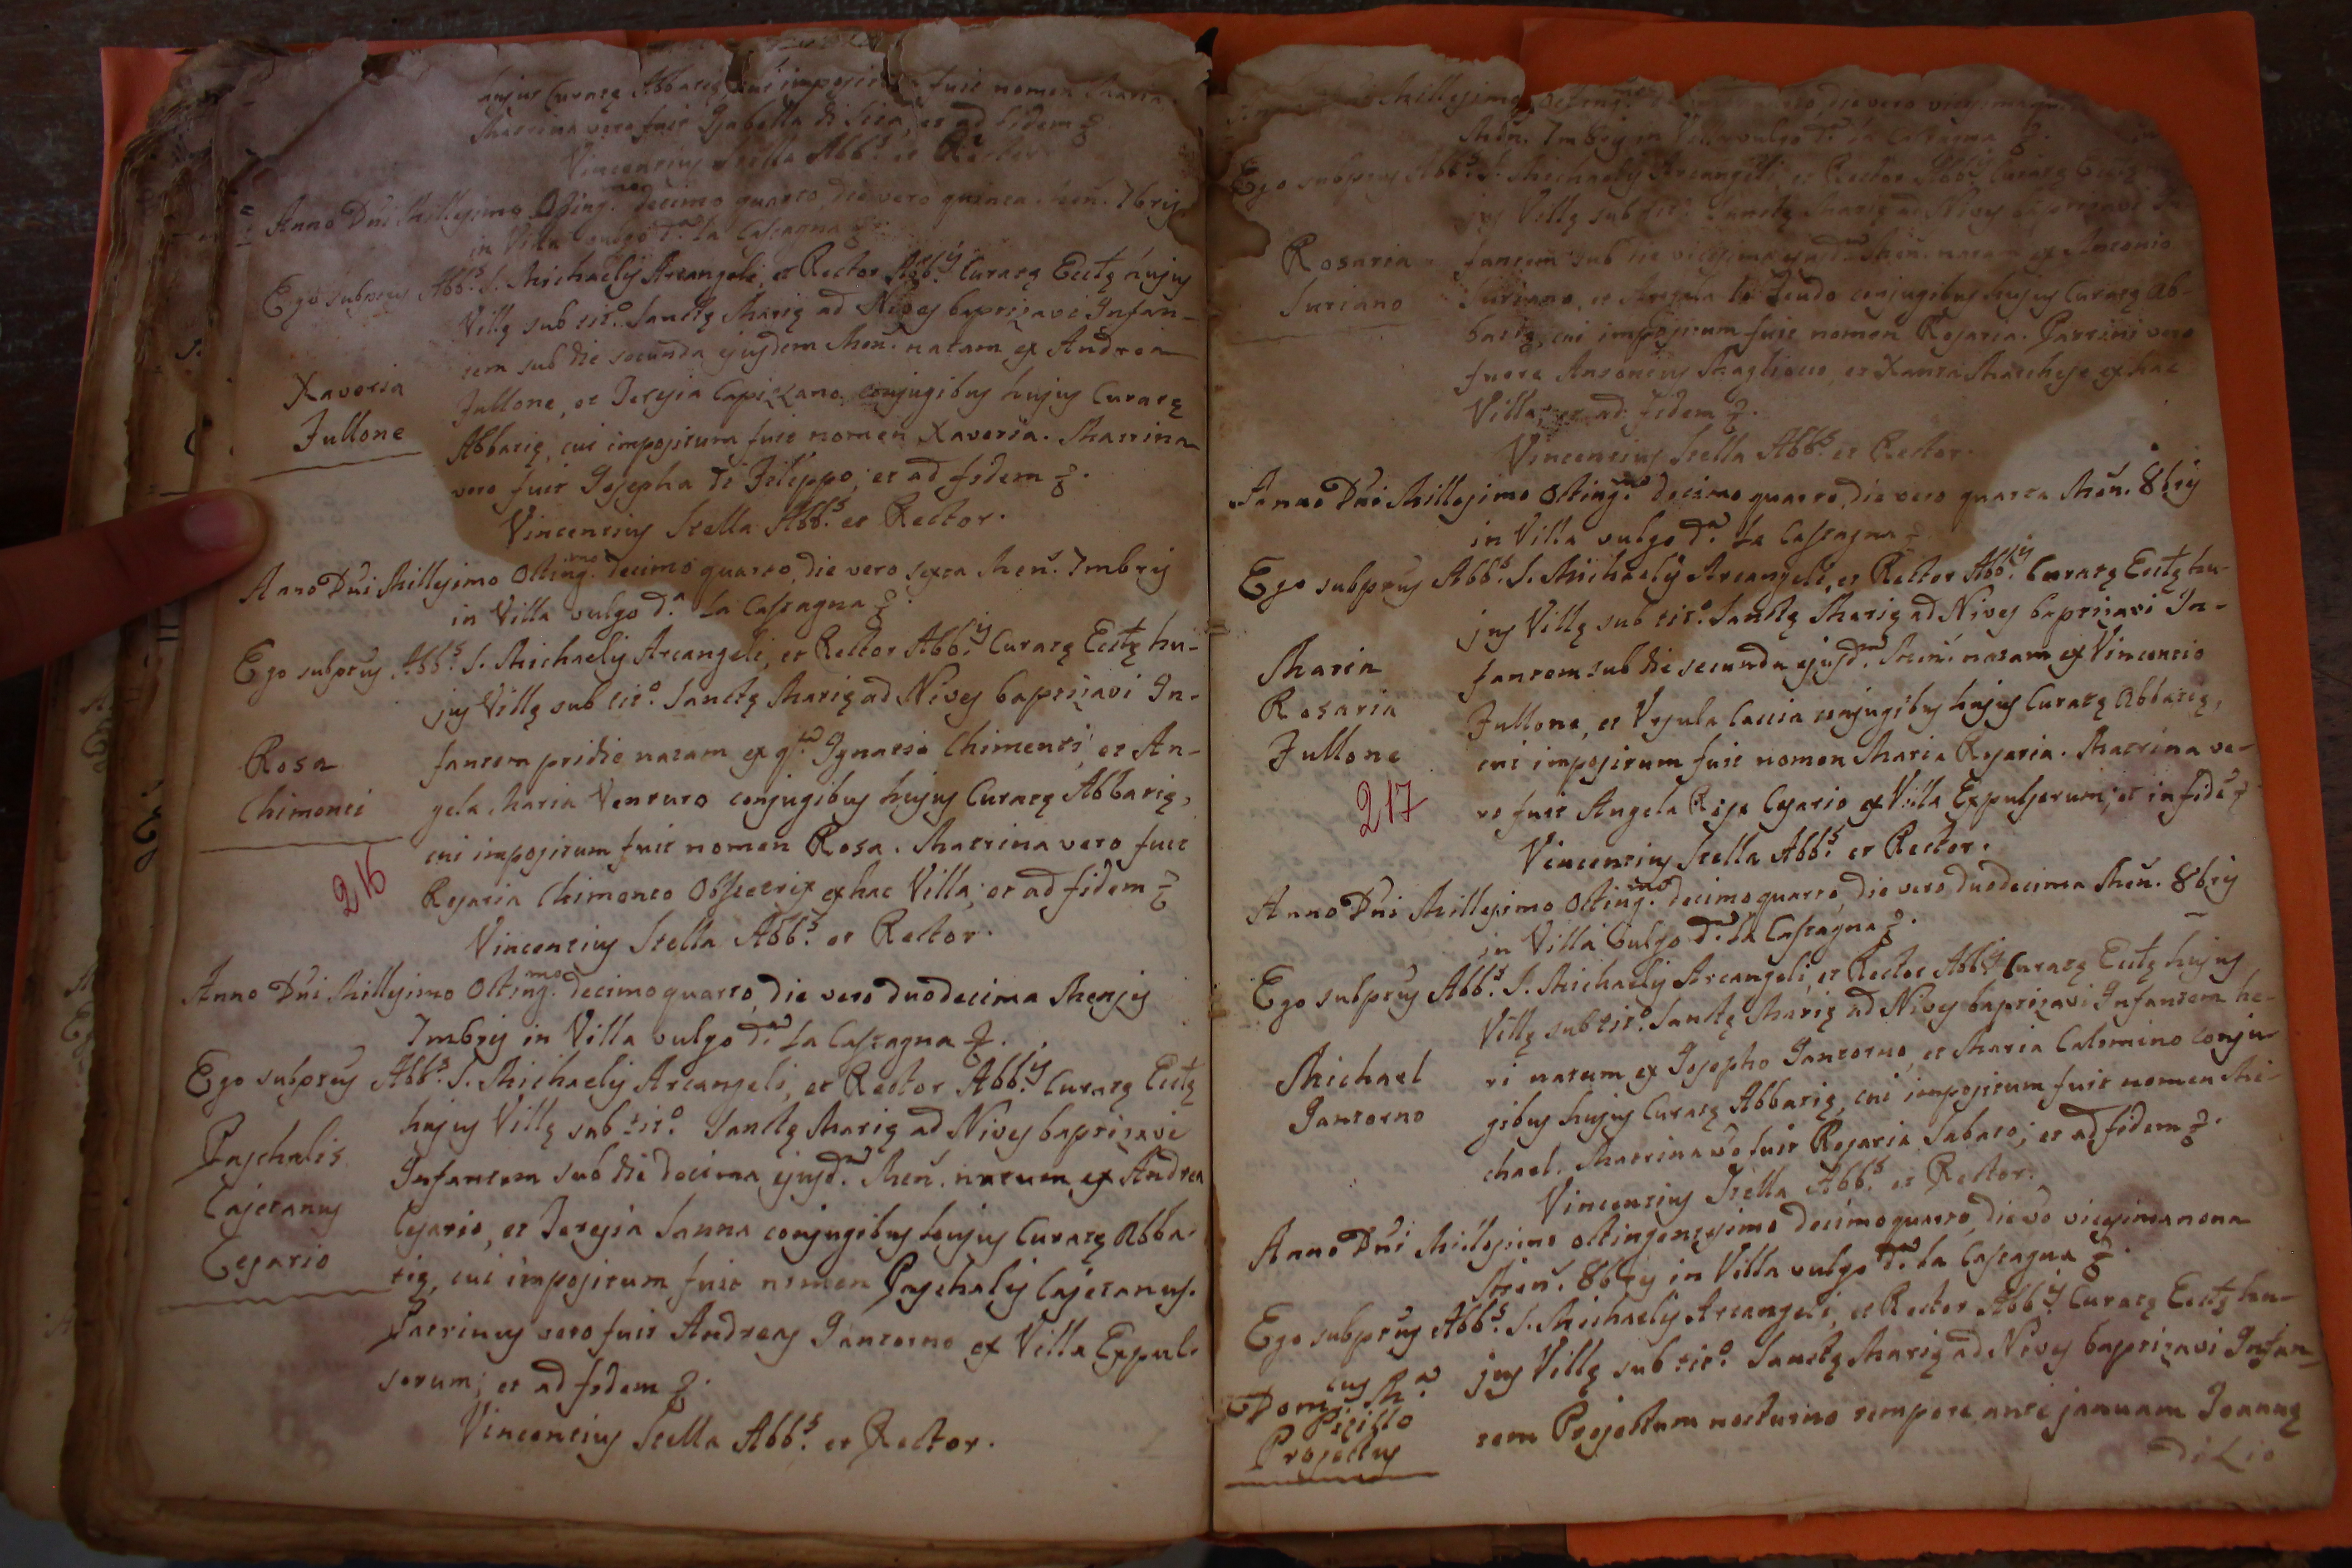 hujus Curatę Abbatię, cui impositum fuit nomen Maria.
Matrina vero fuit Isabella di Lisa, et ad fidem
Vincentius Stella Abb.s et Rector
Anno Dni Millesimo Octing.mo decimo quarto, die vero quinta Men. 7bris
in Villa vulgo d.a La Castagna
Ego subptus Abb.s S. Michaelis Arcangeli, et Rector Abb.is Curatę Ecclę hujus
Villę sub tit.o Sanctę Marię ad Nives baptizavi Infan-
tem sub die secunda ejusdem Men. natam ex Andrea
Xaveria
Fullone
Fullone, et Teresia Capizzano conjugibus hujus Curatę
Abbatię, cui impositum fuit nomen Xaveria. Matrina
vero fuit Josepha de Filippo; et ad fidem
Vincentius Stella Abb.s et Rector.
Anno Dni Millesimo Octing.mo decimo quarto, die vero sexta Men. 7mbris
in Villa vulgo d.a La Castagna
Ego subptus Abb.s S. Michaelis Arcangeli, et Rector Abb.is Curatę Ecclę hu-
jus Villę sub tit.o Sanctę Marię ad Nives baptizavi In-
Rosa
Chimenti
fantem pridie natam ex q.m Ignatio Chimenti, et An-
gela Maria Venturo conjugibus hujus Curatę Abbatię,
cui impositum fuit nomen Rosa. Matrina vero fuit
216
Rosaria Chimenti Obstetrix ex hac Villa; et ad fidem
Vincentius Stella Abb.s et Rector.
Anno Dni Millesimo Octing.mo decimo quarto, die vero duodecima Mensis
7mbris in Villa vulgo d.a La Castagna
Ego subptus Abb.s S. Michaelis Arcangeli, et Rector Abb.is Curatę Ecclę
hujus Villę sub tit.o Sanctę Marię ad Nives baptizavi
Paschalis
Cajetanus
Cesario
Infantem sub die decima ejusd.m Men. natum ex Andrea
Cesario, et Teresia Sanna conjugibus hujus Curatę Abba-
tię, cui impositum fuit nomen Paschalis Cajetanus.
Patrinus vero fuit Andreas Jantorno ex Villa Expul-
sorum; et ad fidem
Vincentius Stella Abb.s et Rector.
Millesimo Octing.mo die vero vigesima
Men. 7mbris in Villa vulgo d.a La Castagna
Ego subptus Abb.s S. Michaelis Arcangeli, et Rector Abb.is Curatę Ecclę
jus Villę sub tit.o Sanctę Marię ad Nives baptizavi
Rosaria
Suriano
fantem sub die vicesima ejusd.m Men. natam ex Antonio
Suriano, et conjugibus hujus Curatę Ab-
batię, cui impositum fuit nomen Rosaria. Patrini vero
fuere Antonius Maglioco, et Xanta Marchese ex hac
Villa, et ad fidem
Vincentius Stella Abb.s et Rector.
Anno Dni Millesimo Octing.mo decimo quarto, die vero quarta Men. 8bris
in Villa vulgo d.a La Castagna
Ego subptus Abb.s S. Michaelis Arcangeli, et Rector Abb.is Curatę Ecclę hu-
jus Villę sub tit.o Sanctę Marię ad Nives baptizavi In-
Maria
Rosaria
Fullone
fantem sub die secunda ejusd.m Men. natam ex Vincentio
Fullone, et Ursula Caccia conjugibus hujus Curatę Abbatię,
cui impositum fuit nomen Maria Rosaria. Matrina ve-
217
ro fuit Angela Rosa Cesario ex Villa Expulsorum; et in fidem
Vincentius Stella Abb.s et Rector.
Anno Dni Millesimo Octing.mo decimo quarto, die vero duodecima Men. 8bris
in Villa vulgo d.a La Castagna
Ego subptus Abb.s S. Michaelis Arcangeli, et Rector Abb.is Curatę Ecclę hujus
Villę sub tit.o Sanctę Marię ad Nives baptizavi Infantem he-
Michael
Jantorno
ri natum ex Josepho Jantorno, et Maria Calomino conju-
gibus hujus Curatę Abbatię, cui impositum fuit nomen Mi-
chael. Matrina vo fuit Rosaria Sabato; et ad fidem
Vincentius Stella Abb.s et Rector.
Anno Dni Millesimo octingentesimo decimo quarto, die vo vicesimanona
Men. 8bris in Villa vulgo d.a La Castagna
Ego subptus Abb.s S. Michaelis Arcangeli, et Rector Abb.is Curatę Ecclę hu-
jus Villę sub tit.o Sanctę Marię ad Nives baptizavi Infan-
Domi.cus M.a
Picillo
Projectus
tem Projectum nocturno tempore ante januam Joannę
di Lio